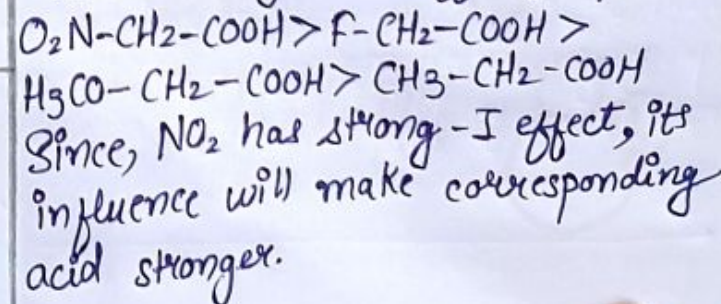 O₂N-CH₂-COOH > F-CH₂-COOH >
H₃CO-CH₂-COOH > CH₃-CH₂-COOH
Since, NO₂ has strong -I effect, its
influence will make corresponding
acid stronger.